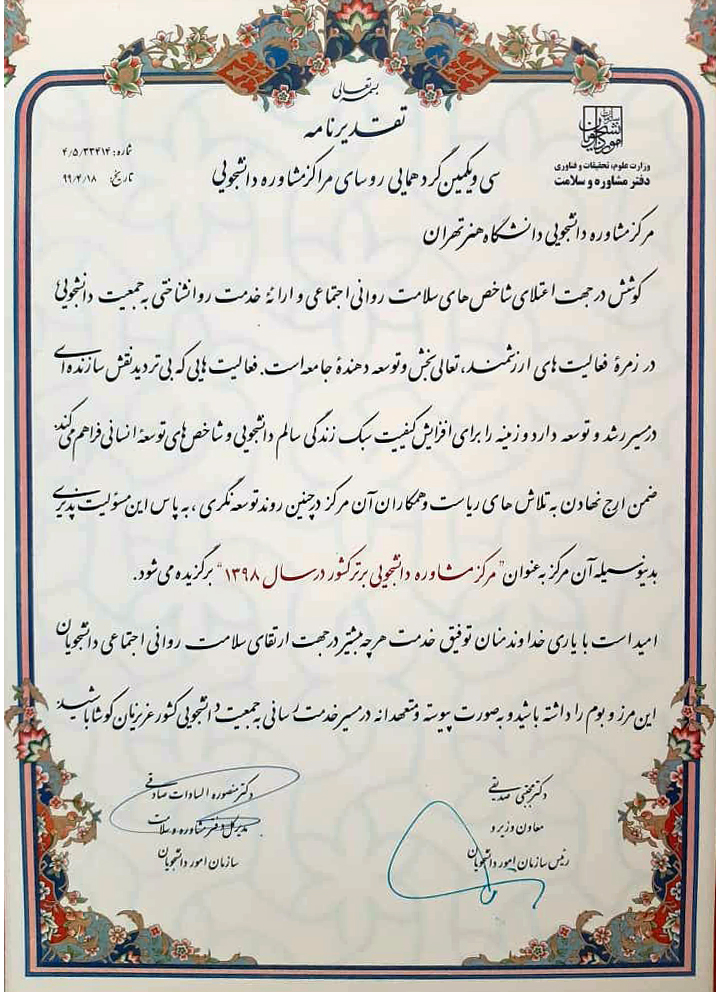 بسمه تعالی
تقدیرنامه
سازمان امور دانشجویان
وزارت علوم، تحقیقات و فناوری
دفتر مشاوره و سلامت
شماره: ۴/۵/۳۳۴۱۴
تاریخ: ۹۹/۴/۱۸
سی ویکمین گردهمایی روسای مراکز مشاوره دانشجویی
مرکز مشاوره دانشجویی دانشگاه هنر تهران
کوشش در جهت اعتلای شاخص های سلامت روانی اجتماعی و ارائهٔ خدمت روانشناختی به جمعیت دانشجویی
در زمرهٔ فعالیت های ارزشمند، تعالی بخش و توسعه دهندهٔ جامعه است. فعالیت هایی که بی تردید نقش سازنده ای
در مسیر رشد و توسعه دارد و زمینه را برای افزایش کیفیت سبک زندگی سالم دانشجویی و شاخص های توسعهٔ انسانی فراهم می کند.
ضمن ارج نهادن به تلاش های ریاست و همکاران آن مرکز در چنین روند توسعه نگری، به پاس این مسئولیت پذیری
بدینوسیله آن مرکز به عنوان "مرکز مشاوره دانشجویی برتر کشور در سال ۱۳۹۸" برگزیده می شود.
امید است با یاری خداوند منان توفیق خدمت هرچه بیشتر در جهت ارتقای سلامت روانی اجتماعی دانشجویان
این مرز و بوم را داشته باشید و به صورت پیوسته و متعهدانه در مسیر خدمت رسانی به جمعیت دانشجویی کشور عزیزمان کوشا باشید.
دکتر مجتبی صدیقی
معاون وزیر و
رئیس سازمان امور دانشجویان
دکتر منصوره السادات صادقی
مدیر کل دفتر مشاوره و سلامت
سازمان امور دانشجویان